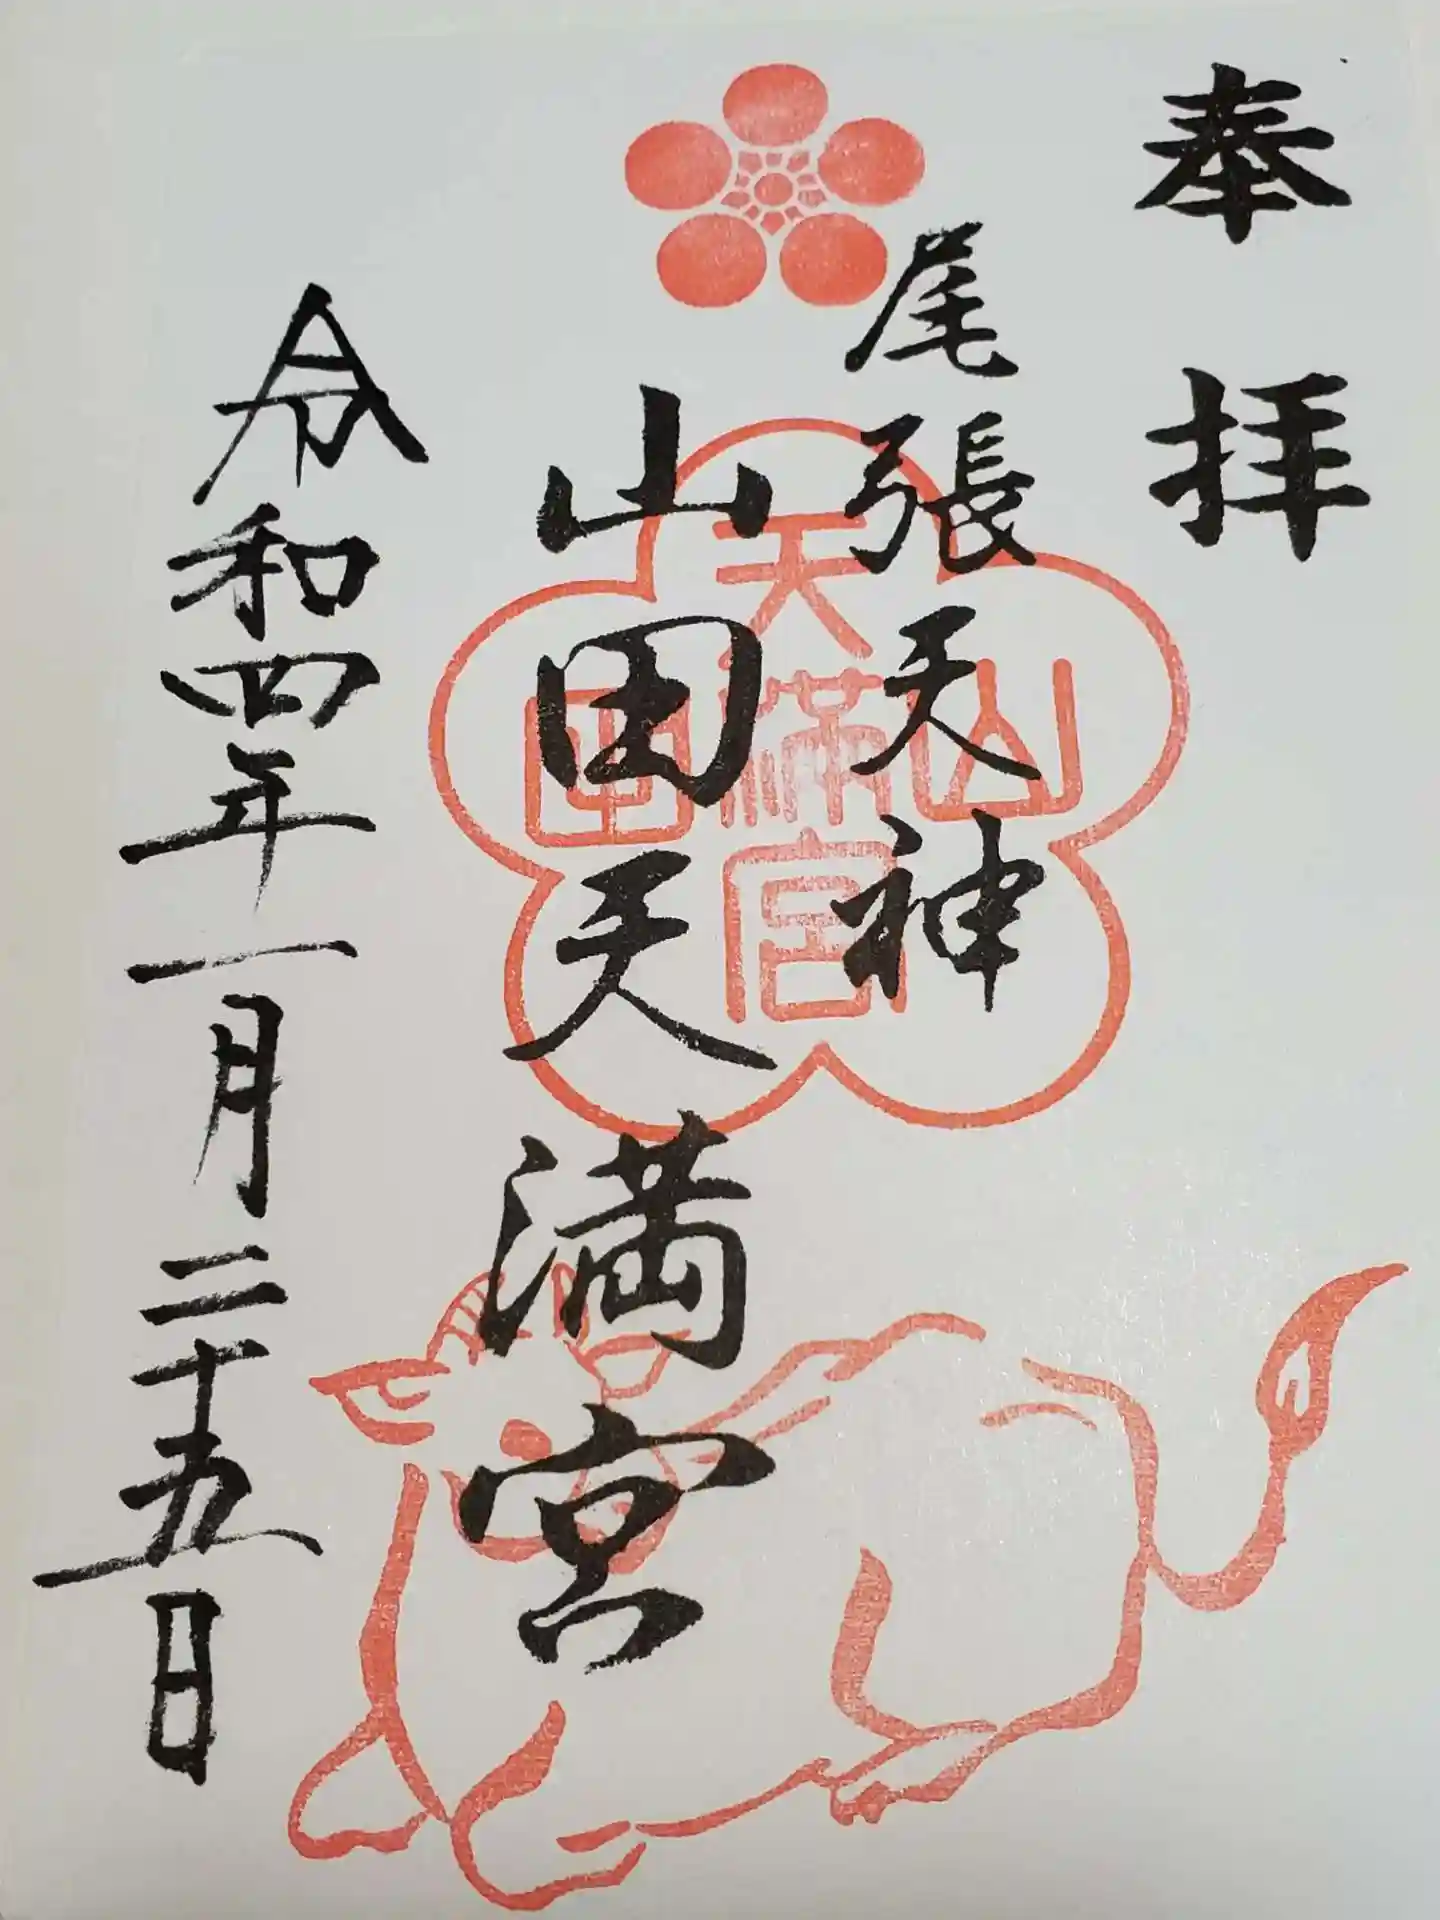 奉拝
尾張天神
山田天満宮
令和四年一月二十五日
山田天満宮